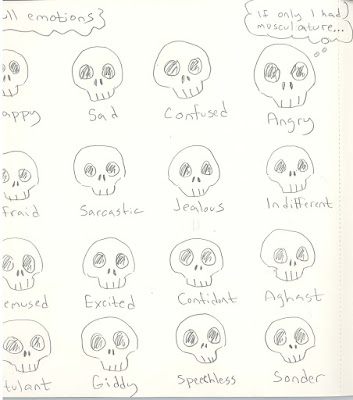 ull emotions
If only I had
musculature...
appy Sad Confused Angry
fraid Sarcastic Jealous Indifferent
emused Excited Confidant Aghast
tulant Giddy Speechless Sonder